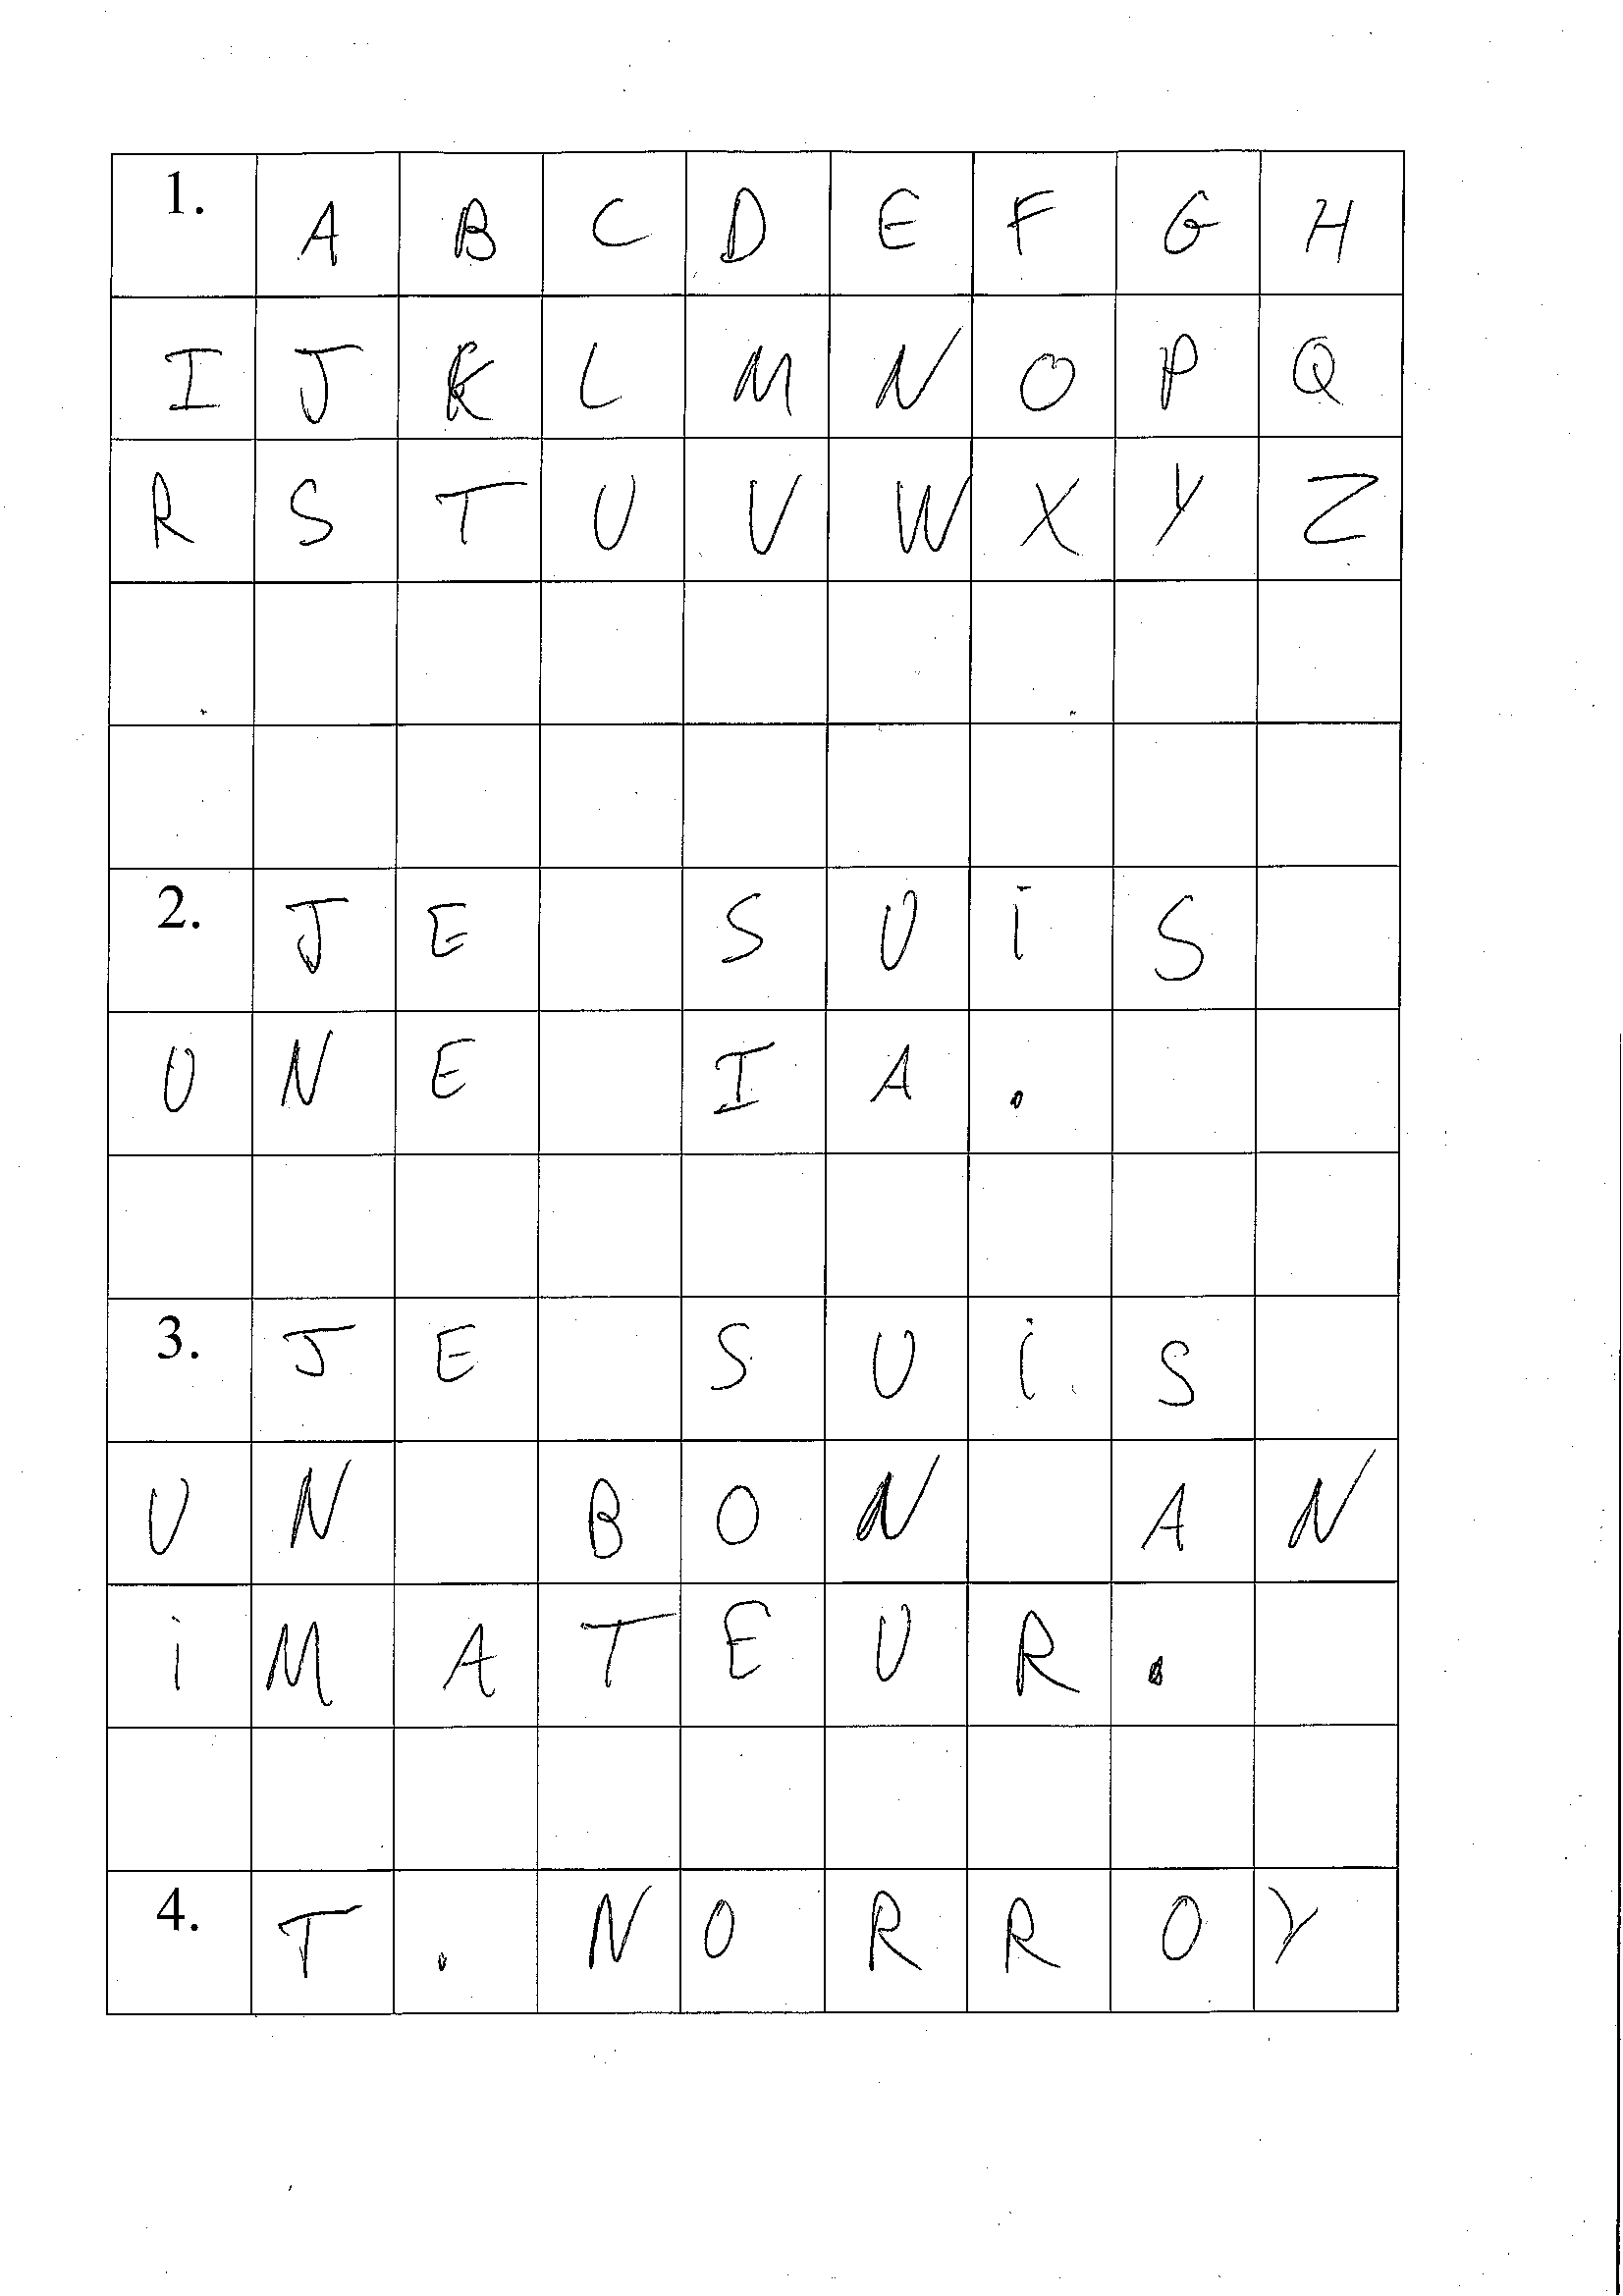 1. A B C D E F G H
I J K L M N O P Q
R S T U V W X Y Z
2. J E S U i S
U N E I A .
3. J E S U i S
U N B O N A N
i M A T E U R .
4. T . N O R R O Y